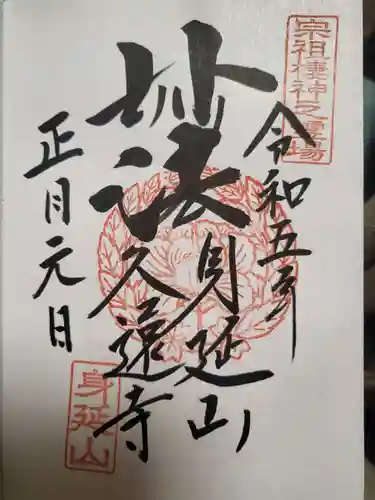 宗祖棲神之霊場
令和五年
妙法
身延山
久遠寺
正月元日
身延山